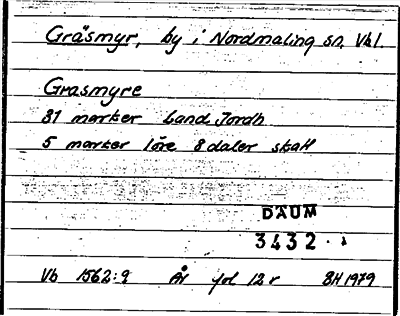 Gräsmyr, by i Nordmaling sn, Vbl.
Grasmyre
31 marker Land Jordh
5 marker löre 8 daler skatt
DAUM
3432.
Vb 1562:9 År fol 12 r BH 1979